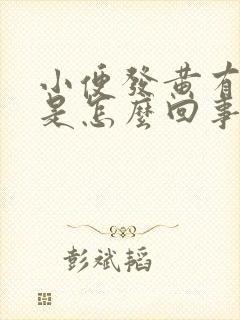 小便發黃有
是怎麼回事
彭斌韜